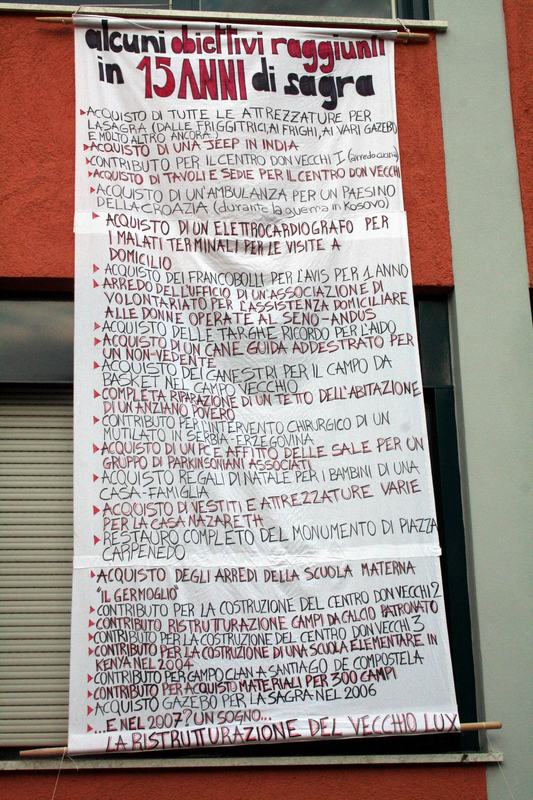 alcuni obiettivi raggiunti
in 15 ANNI di sagra
ACQUISTO DI TUTTE LE ATTREZZATURE PER
LA SAGRA (DALLE FRIGGITRICI, AI FRIGHI, AI VARI GAZEBO
E MOLTO ALTRO ANCORA)
ACQUISTO DI UNA JEEP IN INDIA
CONTRIBUTO PER IL CENTRO DON VECCHI I (arredo cucina)
ACQUISTO DI TAVOLI E SEDIE PER IL CENTRO DON VECCHI
ACQUISTO DI UN'AMBULANZA PER UN PAESINO
DELLA CROAZIA (durante la guerra in Kosovo)
ACQUISTO DI UN ELETTROCARDIOGRAFO PER
I MALATI TERMINALI PER LE VISITE A
DOMICILIO
ACQUISTO DEI FRANCOBOLLI PER L'AVIS PER 1 ANNO
ARREDO DELL'UFFICIO DI UN'ASSOCIAZIONE DI
VOLONTARIATO PER L'ASSISTENZA DOMICILIARE
ALLE DONNE OPERATE AL SENO-ANDUS
ACQUISTO DELLE TARGHE RICORDO PER L'AIDO
ACQUISTO DI UN CANE GUIDA ADDESTRATO PER
UN NON-VEDENTE
ACQUISTO DEI CANESTRI PER IL CAMPO DA
BASKET NEL CAMPO VECCHIO
COMPLETA RIPARAZIONE DI UN TETTO DELL'ABITAZIONE
DI UN ANZIANO POVERO
CONTRIBUTO PER L'INTERVENTO CHIRURGICO DI UN
MUTILATO IN SERBIA-ERZEGOVINA
ACQUISTO DI UN PC E AFFITTO DELLE SALE PER UN
GRUPPO DI PARKINSONIANI ASSOCIATI
ACQUISTO REGALI DI NATALE PER I BAMBINI DI UNA
CASA-FAMIGLIA
ACQUISTO DI VESTITI E ATTREZZATURE VARIE
PER LA CASA NAZARETH
RESTAURO COMPLETO DEL MONUMENTO DI PIAZZA
CARPENEDO
ACQUISTO DEGLI ARREDI DELLA SCUOLA MATERNA
"IL GERMOGLIO"
CONTRIBUTO PER LA COSTRUZIONE DEL CENTRO DON VECCHI 2
CONTRIBUTO RISTRUTTURAZIONE CAMPI DA CALCIO PATRONATO
CONTRIBUTO PER LA COSTRUZIONE DEL CENTRO DON VECCHI 3
CONTRIBUTO PER LA COSTRUZIONE DI UNA SCUOLA ELEMENTARE IN
KENYA NEL 2004
CONTRIBUTO PER CAMPO CLAN A SANTIAGO DE COMPOSTELA
CONTRIBUTO PER ACQUISTO MATERIALI PER 300 CAMPI
ACQUISTO GAZEBO PER LA SAGRA NEL 2006
...E NEL 2007? UN SOGNO...
LA RISTRUTTURAZIONE DEL VECCHIO LUX